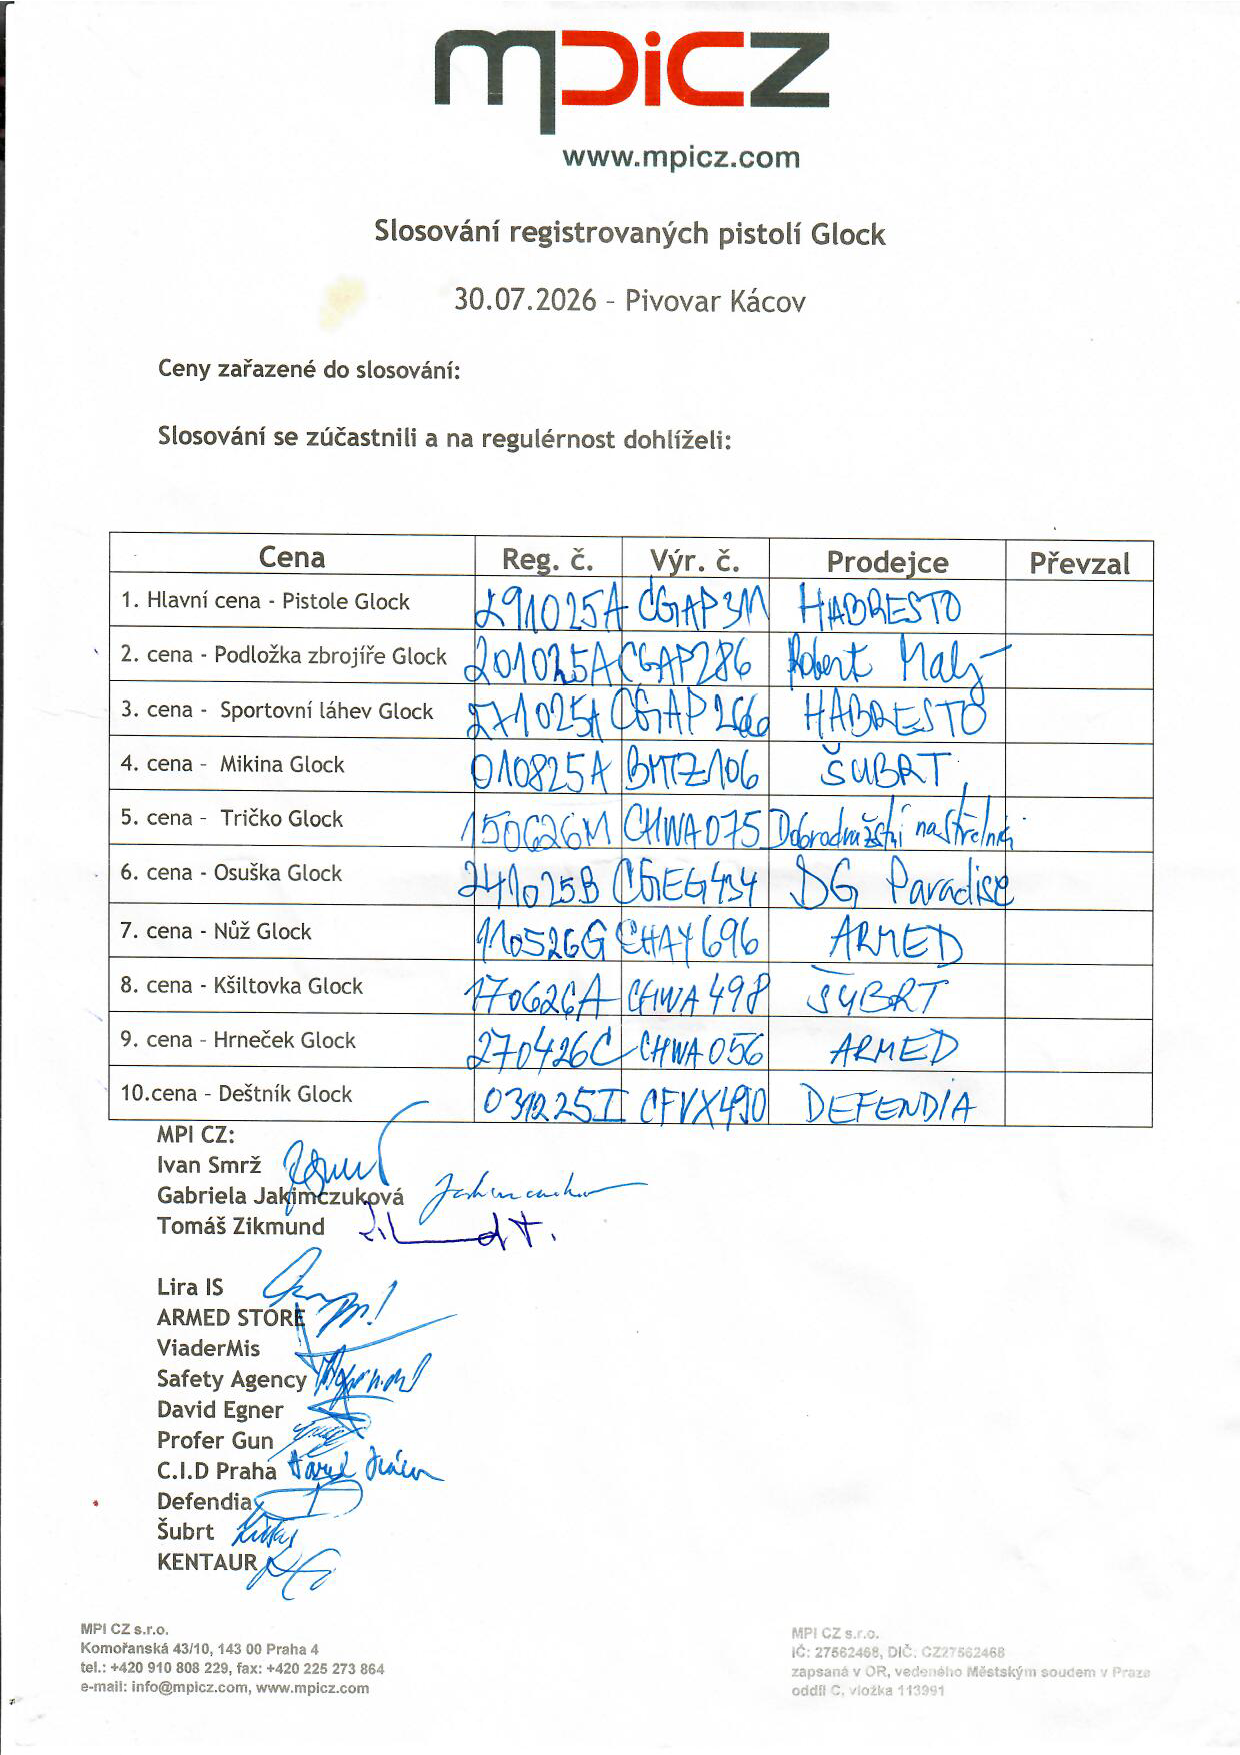 mpicz
www.mpicz.com
Slosování registrovaných pistolí Glock
30.07.2026 - Pivovar Kácov
Ceny zařazené do slosování:
Slosování se zúčastnili a na regulérnost dohlíželi:
Cena Reg. č. Výr. č. Prodejce Převzal
1. Hlavní cena - Pistole Glock 291025A CGAP311 HABRESTO
2. cena - Podložka zbrojíře Glock 201025A CGAP286 Robert Malý
3. cena - Sportovní láhev Glock 271025A CGAP266 HABRESTO
4. cena - Mikina Glock 010825A BMTZ106 ŠUBRT
5. cena - Tričko Glock 150626M CHWA075 Dobrodružství na střelnici
6. cena - Osuška Glock 241025B CGEG434 DG Paradise
7. cena - Nůž Glock 110526G CHAY696 ARMED
8. cena - Kšiltovka Glock 170626A CHWA498 ŠUBRT
9. cena - Hrneček Glock 270426C CHWA056 ARMED
10.cena - Deštník Glock 031225I CFVX490 DEFENDIA
MPI CZ:
Ivan Smrž
Gabriela Jakimczuková
Tomáš Zikmund
Lira IS
ARMED STORE
ViaderMis
Safety Agency
David Egner
Profer Gun
C.I.D Praha
Defendia
Šubrt
KENTAUR
MPI CZ s.r.o.
Komořanská 43/10, 143 00 Praha 4
tel.: +420 910 808 229, fax: +420 225 273 864
e-mail: info@mpicz.com, www.mpicz.com
MPI CZ s.r.o.
IČ: 27562468, DIČ: CZ27562468
zapsaná v OR, vedeného Městským soudem v Praze
oddíl C, vložka 113991